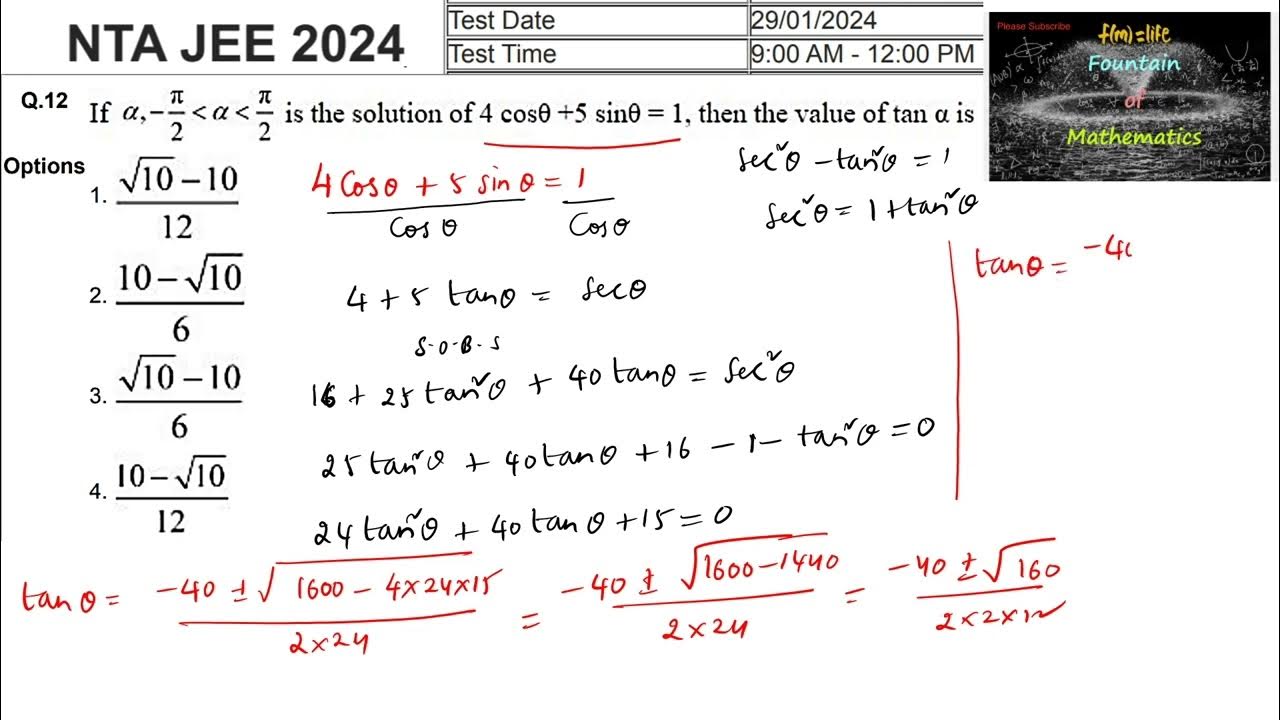 NTA JEE 2024
Test Date 29/01/2024
Test Time 9:00 AM - 12:00 PM
Please Subscribe
f(m)=life
Fountain
of
Mathematics
Q.12 If α, -π/2 < α < π/2 is the solution of 4 cosθ +5 sinθ = 1, then the value of tan α is
Options
1. (√10 - 10)/12
2. (10 - √10)/6
3. (√10 - 10)/6
4. (10 - √10)/12
(4 Cosθ + 5 sinθ)/Cosθ = 1/Cosθ
4 + 5 tanθ = secθ
S.O.B.S
16 + 25 tan²θ + 40 tanθ = sec²θ
25 tan²θ + 40 tanθ + 16 - 1 - tan²θ = 0
24 tan²θ + 40 tanθ + 15 = 0
sec²θ - tan²θ = 1
sec²θ = 1 + tan²θ
tanθ = -40
tanθ = (-40 ± √(1600 - 4×24×15))/(2×24) = (-40 ± √(1600-1440))/(2×24) = (-40 ± √160)/(2×2×12)